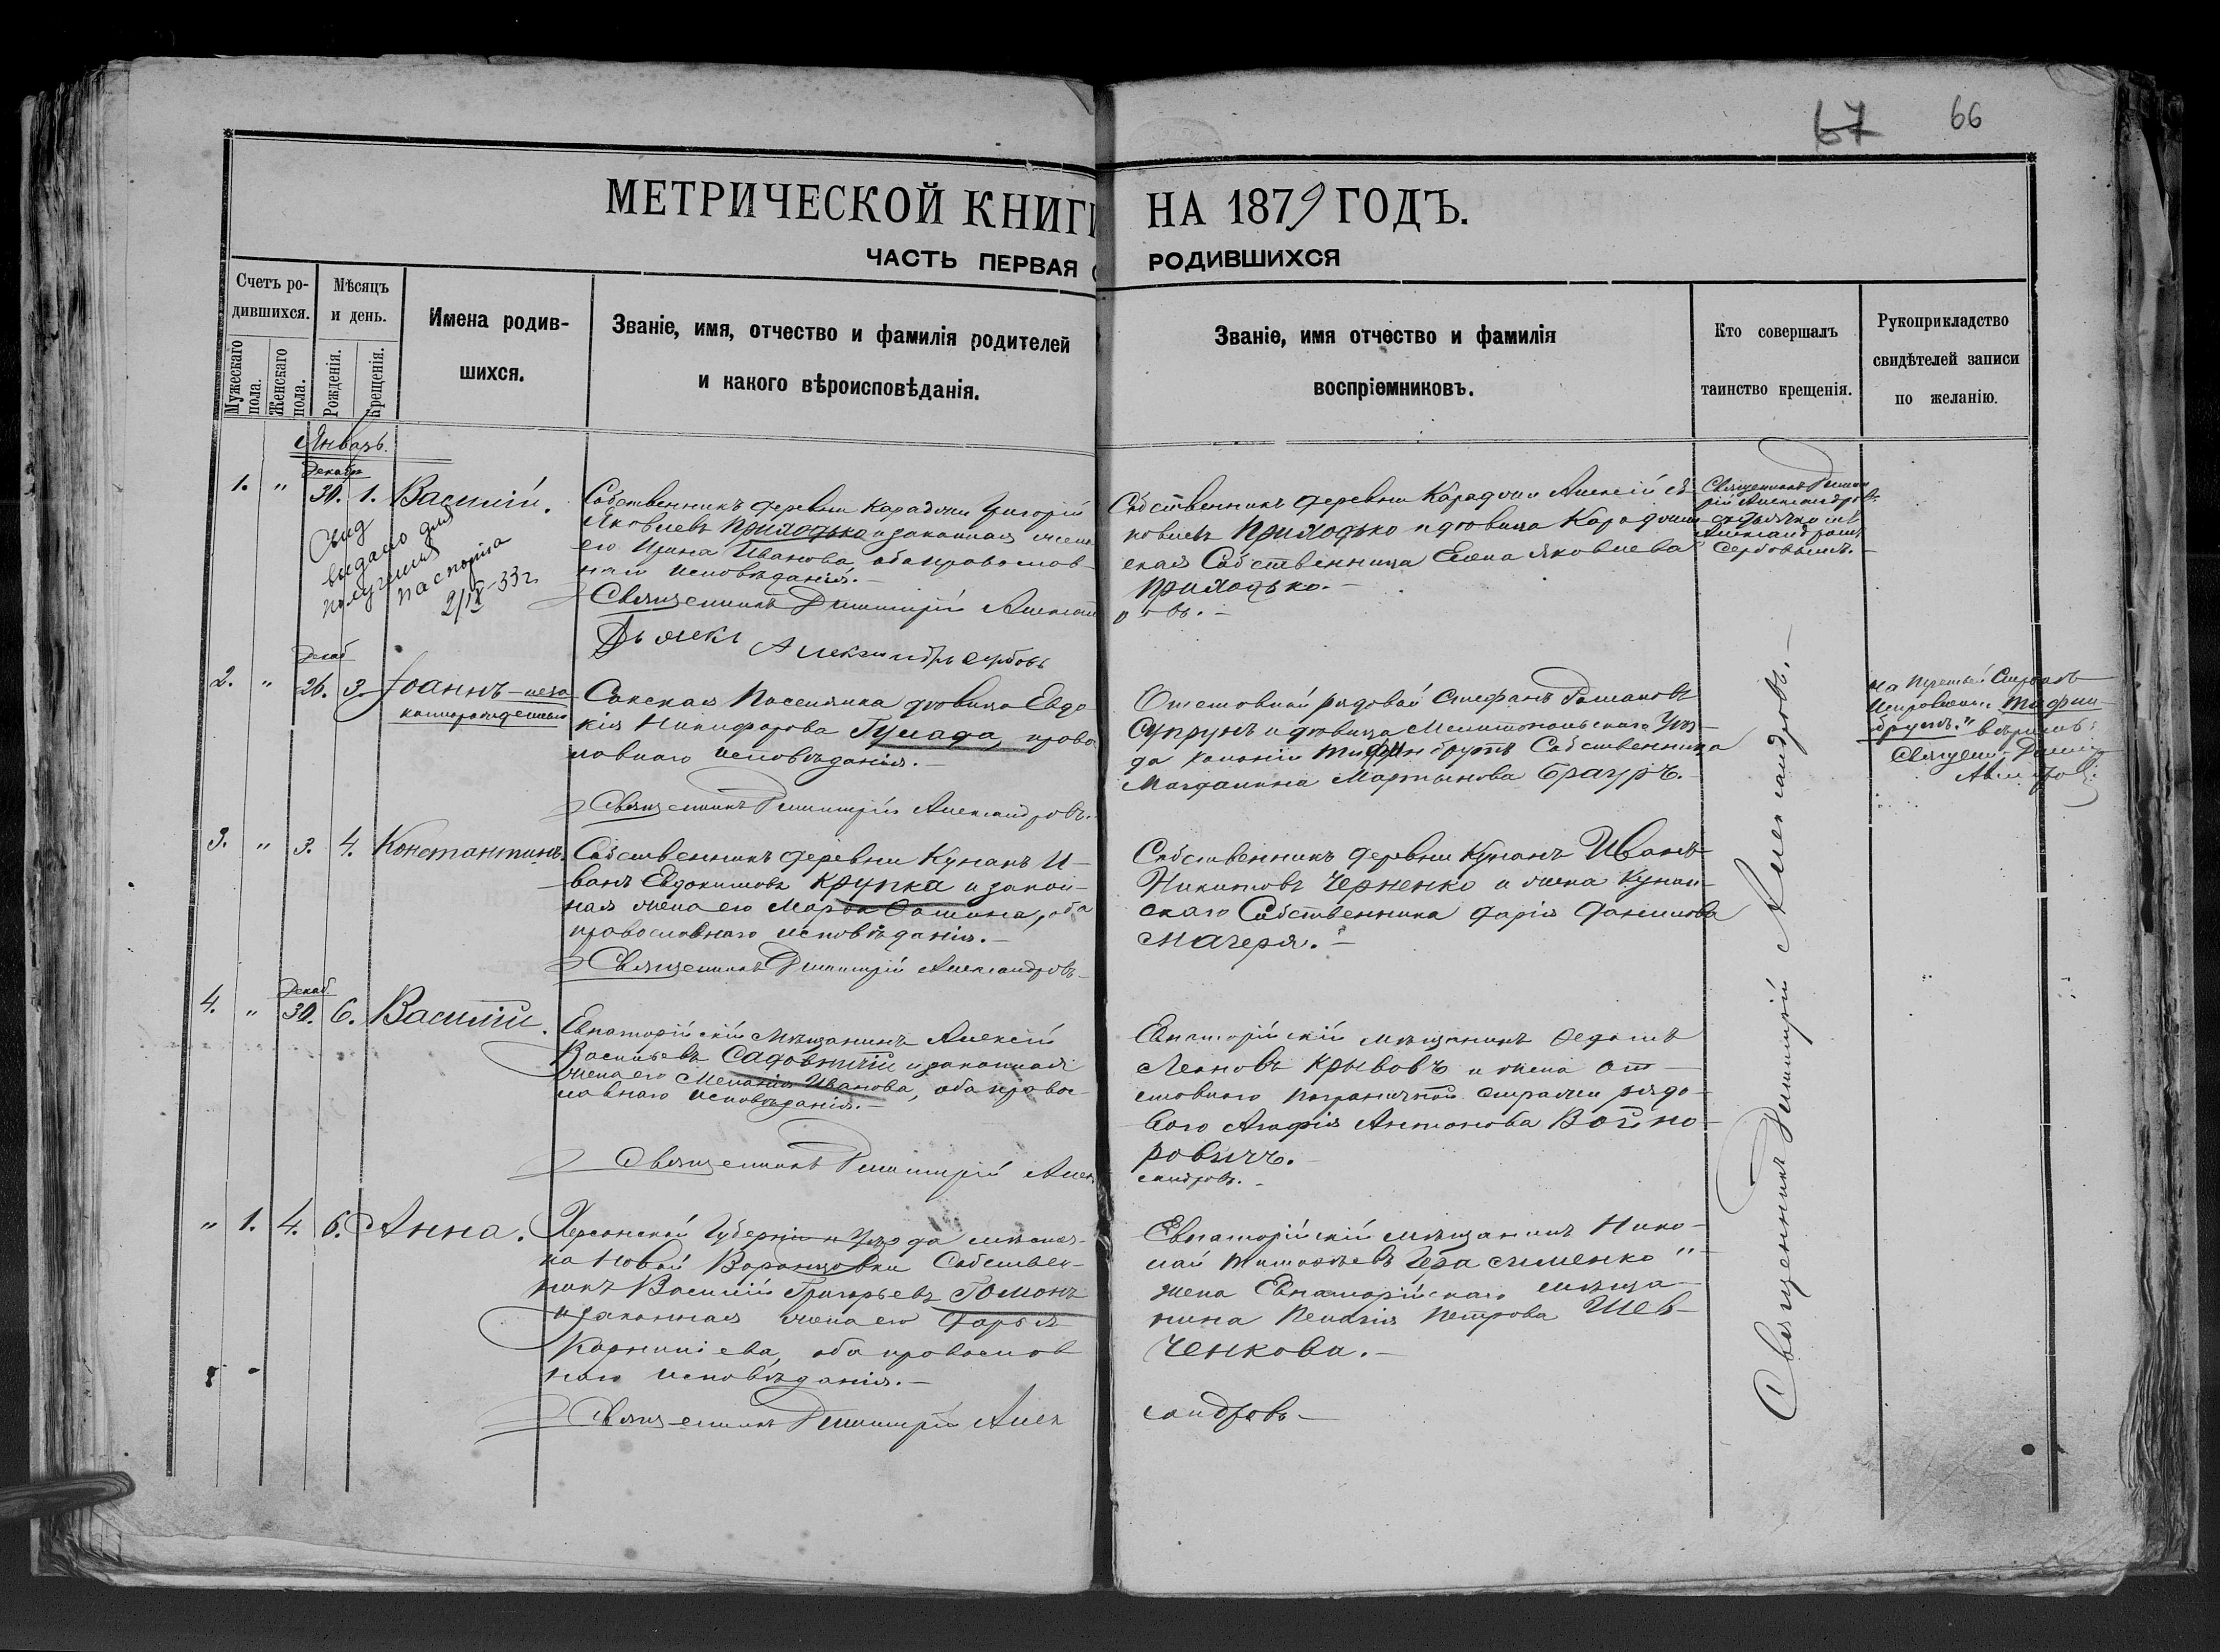 67 66
МЕТРИЧЕСКОЙ КНИГИ НА 1879 ГОДЪ.
ЧАСТЬ ПЕРВАЯ РОДИВШИХСЯ
Счетъ ро-
дившихся.
Мужескаго
пола.
Женскаго
пола.
Мѣсяцъ
и день.
Рожденія.
Крещенія.
Имена родив-
шихся.
Званіе, имя, отчество и фамилія родителей
и какого вѣроисповѣданія.
Званіе, имя отчество и фамилія
воспріемниковъ.
Кто совершалъ
таинство крещенія.
Рукоприкладство
свидѣтелей записи
по желанію.
Январь.
Декабр
1. " 30. 1. Василій.
выдано для
полученія
паспорта
2/IX-33 г.
Собственникъ деревни Караджи Григорій
Яковлевъ Приходько и законная жена
его Ирина Иванова, оба православ-
наго исповѣданія.-
Священникъ Димитрій Александ
ровъ.-
Дьячекъ Александръ Сербовъ
Собственникъ деревни Караджи Алексій Я-
ковлевъ Приходько и дѣвица Караджин-
ская Собственница Елена Яковлева
Приходько.-
Священникъ Димит
рій Александровъ
съ дьячкомъ
Александромъ
Сербовымъ.-
Декаб
2. " 26. 3. Іоаннъ-неза
коннорожденный
Сакская Поселянка дѣвица Евдо
кія Никифорова Гулада, право
лавнаго исповѣданія.-
Священникъ Димитрій Александровъ.
Отставной рядовой Стефанъ Романовъ
Супрунъ и дѣвица Мелитопольскаго Уѣз-
да колоніи Тифенбрунъ Собственница
Магдалина Мартынова Брауръ.-
на третьей Строкѣ
Исправленно "Тифин-
брунъ." вѣрнымъ:
3. " 3. 4. Константинъ.
Собственникъ деревни Кунанъ И-
ванъ Евдокимовъ Крупка и закон-
ная жена его Марѳа Ѳомина, оба
православнаго исповѣданія.-
Священникъ Димитрій Александровъ-
Собственникъ деревни Кунанъ Иванъ
Никитовъ Черненко и жена Кунан-
скаго Собственника Дарія Данилова
Мачеря.-
Декаб
4. " 30. 6. Василій.
Евпаторійскій Мѣщанинъ Алексій
Васильевъ Садовничій и законная
жена его Меланія Иванова, оба правос-
лавнаго исповѣданія.-
Священникъ Димитрій Алек
сандровъ.-
Евпаторійскій мѣщанинъ Ѳедотъ
Леоновъ Крывовъ и жена от-
ставного пограничной стражи рядо-
вого Агафія Антонова Войно-
ровичъ.
" 1. 4. 6. Анна.
Херсонской Губерніи и Уѣзда мѣстеч-
ка Новой Воронцовки Собствен-
никъ Василій Григорьевъ Гомонъ
и законная жена его Дарья
Корниліева, оба православ
наго исповѣданія.-
Священникъ Димитрій Алек
сандровъ-
Евпаторійскій мѣщанинъ Нико-
лай Тимоѳеевъ Герасименко и
жена Евпаторійскаго мѣща-
нина Пелагія Петрова Шев-
ченкова.-
Священникъ Димитрій Александровъ.-